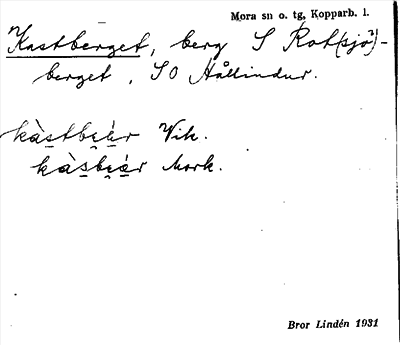 Mora sn o. tg, Kopparb. l.
Kastberget, berg S Rot(sjö)-
berget, SO Hållindur.
kàstbɛár Vik.
kàsbɛár Mork.
Bror Lindén 1931